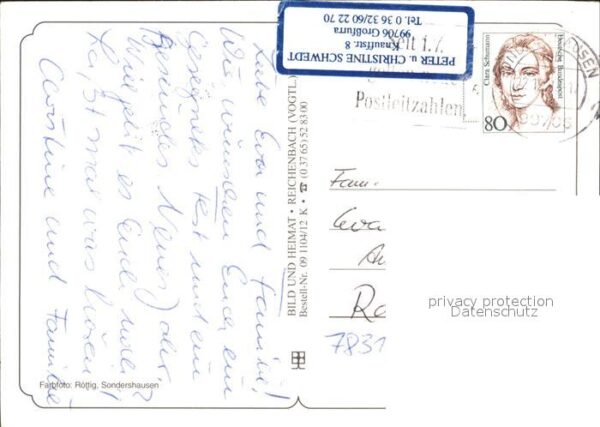 Liebe Eva und Familie!
Wir wünschen Euch ein
gesegnetes Fest und ein
Gesundes Neues Jahr.
Wie geht es Euch
Laßt mal was hören!
Christine und Familie
PETER u. CHRISTINE SCHWEDT
Knauffstr. 8
99706 Großfurra
Tel. 0 36 32/60 22 70
seit 1.7.
Postleitzahlen
Clara Schumann
Deutsche Bundespost
80
BILD UND HEIMAT • REICHENBACH (VOGTL)
Bestell-Nr. 09 1104/12 K • ☎ (0 37 65) 52 83 00
Fam.
Eva
Re
7831
privacy protection
Datenschutz
Farbfoto: Röttig, Sondershausen